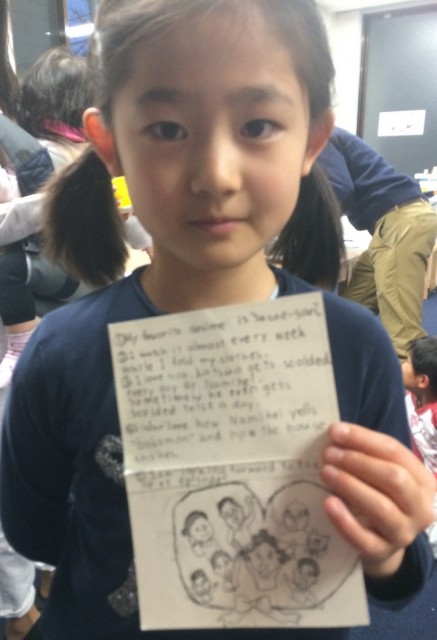 My favorite anime is "Sazae-san".
① I watch it almost every week
while I fold my clothes.
② I love how Katsuo gets scolded
every day by Namihei.
Sometimes he even gets
scolded twice a day.
③ I also love how Namihei yells
"Bakamon" and the house
④ I am looking forward to the
next episode!